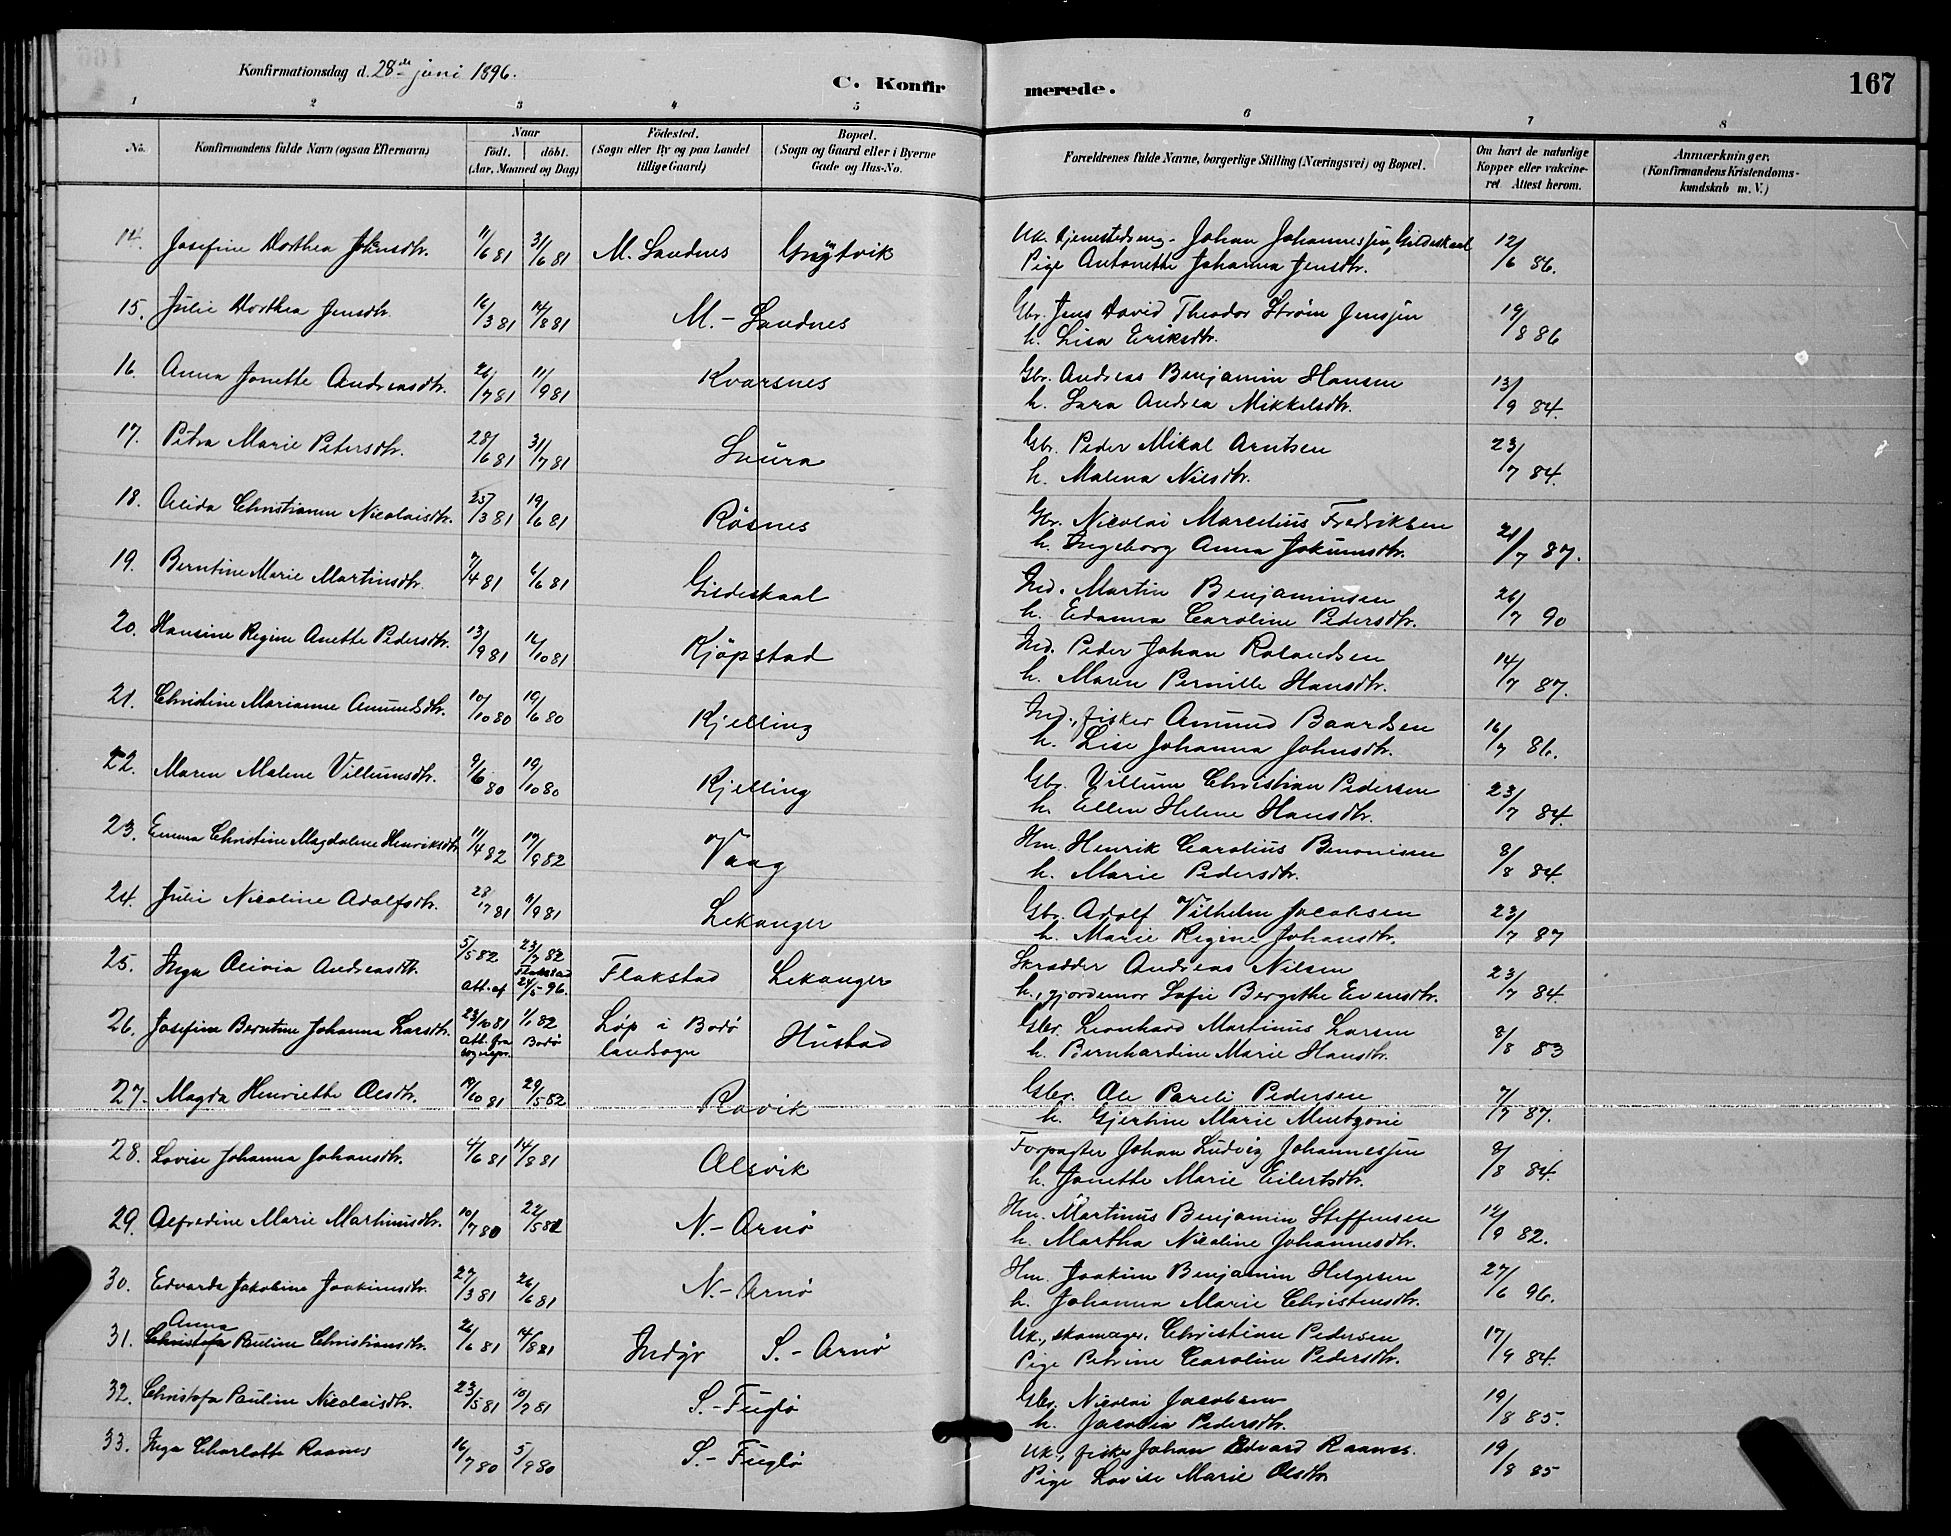 Konfirmationsdag d. 28de juni 1896.
C. Konfirmerede.
167
1 2 3 4 5 6 7 8
No. Konfirmandens fulde Navn (ogsaa Efternavn) Naar født. døbt. (Aar, Maaned og Dag) Fødested. (Sogn eller By og paa Landet tillige Gaard) Bopæl. (Sogn og Gaard eller i Byerne Gade og Hus-No. Forældrenes fulde Navne, borgerlige Stilling (Næringsvei) og Bopæl. Om havt de naturlige Kopper eller vakcineret Attest herom. Anmærkninger. (Konfirmandens Kristendomskundskab m. V.)
14. Josefine Dorthea Johnsdtr. 11/6 81 31/6 81 M. Sandnes Grøtvik Uk. tjenestedreng. Johan Johannessen, Gildeskaal 12/6 86.
Pige Antonette Johanna Jensdtr.
15. Julie Dorthea Jensdtr. 16/3 81 14/8 81 M.- Sandnes Gbr. Jens David Theodor Strøm Jenssen 19/8 86
h. Lisa Eriksdtr.
16. Anna Jonette Andreasdtr. 26/7 81 11/9 81 Kvarsnes Gbr. Andreas Benjamin Hansen 13/9 84.
h. Sara Andrea Mikkelsdtr.
17. Petra Marie Petersdtr. 28/6 81 31/7 81 Saura Gbr. Peder Mikal Arntsen 23/7 84.
h. Malena Nilsdtr.
18. Alida Christianna Nicolaisdtr. 25/3 81 19/6 81 Røsnes Gbr. Nicolai Marcelius Fredriksen 21/7 87.
h. Ingeborg Anna Jokumsdtr.
19. Berntine Marie Martinsdtr. 7/4 81 6/6 81 Gildeskaal Ind. Martin Benjaminsen 26/7 90
h. Edanna Caroline Pedersdtr.
20. Hansine Regine Anette Pedersdtr. 13/9 81 16/10 81 Kjøpstad Ind. Peder Johan Rolandsen 14/7 87.
h. Maren Pernille Hansdtr.
21. Christine Marianne Amundsdtr. 10/10 80 19/6 80 Kjelling Ind., fisker Amund Baardsen 16/7 86.
h. Lise Johanna Johnsdtr.
22. Maren Malene Villumsdtr. 9/6 80 19/10 80 Kjelling Gbr. Villum Christian Pedersen 23/7 84.
h. Ellen Helene Hansdtr.
23. Emma Christine Magdalene Henriksdtr. 11/4 82 17/9 82 Vaag Hm. Henrik Carolius Benonisen 8/8 84.
h. Marie Pedersdtr.
24. Julie Nicoline Adolfsdtr. 28/7 81 11/9 81 Lekanger Gbr. Adolf Vilhelm Jacobsen 23/7 87
h. Marie Regine Johansdtr.
25. Inga Olivia Andreasdtr. 5/5 82 23/7 82 Flakstad Lekanger Skrædder Andreas Nilsen 23/7 84.
Att. af Flakstad 24/5 96. h., gjordemor Sofie Bergithe Evensdtr.
26. Josefine Berntine Johanna Larsdtr. 23/10 81 1/1 82 Løp i Bodø landsogn Hustad Gbr. Leonhard Martinus Larsen 8/8 83
Att. fra sognepr. Bodø h. Bernhardine Marie Hansdtr.
27. Magda Henriette Olsdtr. 19/10 81 29/5 82 Ravik Gbr. Ole Pareli Pedersen 7/7 87.
h. Gjertine Marie Mentzoni
28. Lovise Johanna Johansdtr. 4/6 81 14/8 81 Alsvik Forpagter Johan Ludvig Johannessen 8/8 84.
h. Jonette Marie Eilertsdtr.
29. Alfredine Marie Martinusdtr. 10/7 80 22/5 81 N.- Arnø Hm. Martinus Benjamin Steffensen 12/9 82.
h. Martha Nicoline Johannesdtr.
30. Edvarda Jakobine Joakimsdtr. 27/3 81 26/6 81 N.- Arnø Hm. Joakim Benjamin Helgesen 27/6 96.
h. Johanna Marie Christensdtr.
Anna
31. Christofa Pauline Christiansdtr. 26/6 81 14/8 81 Indyr S.- Arnø Uk., skomager. Christian Pedersen 17/9 84.
Pige Petrine Caroline Pedersdtr.
32. Christofa Pauline Nicolaisdtr. 23/5 81 10/7 81 S.- Fuglø Gbr. Nicolai Jacobsen 19/8 85.
h. Jacobia Pedersdtr.
33. Inga Charlotte Raanes 16/7 80 5/9 80 S.- Fuglø Uk., fisker Johan Edvard Raanes. 19/8 85
Pige Lovise Marie Olsdtr